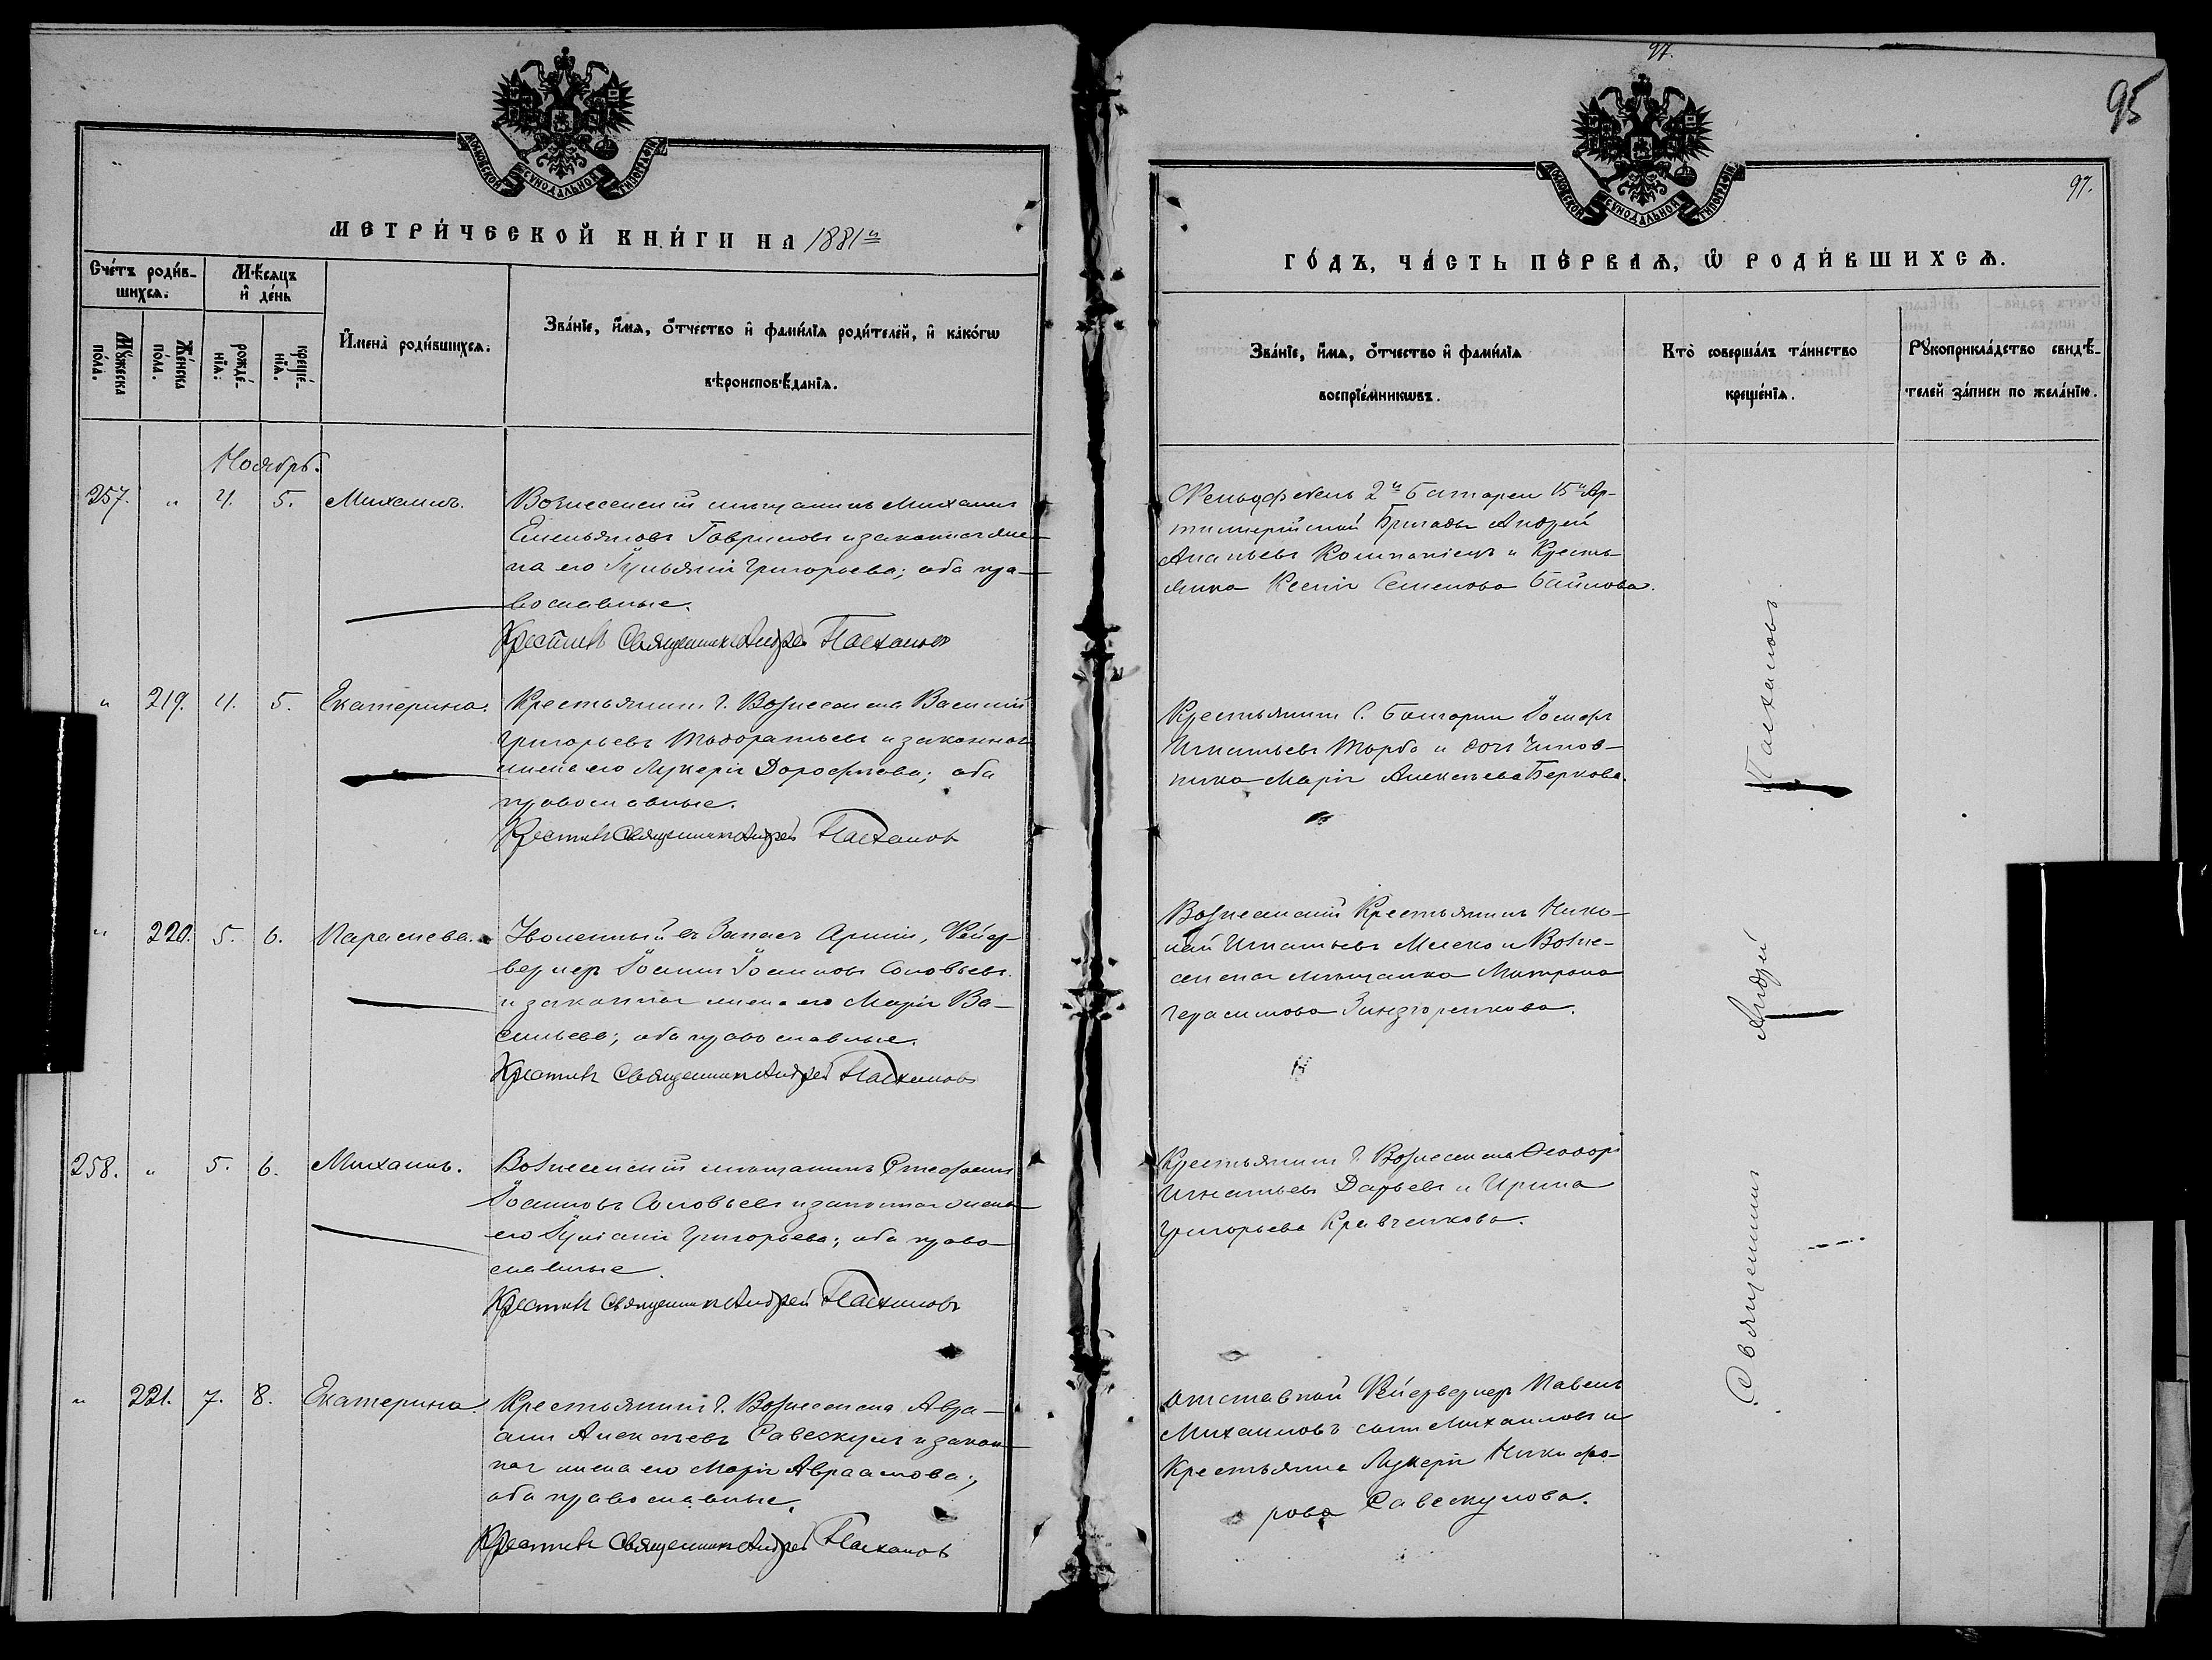 97.
95
97.
МОСКОВСКОЙ СѴНОДАЛЬНОЙ ТИПОГРАФІИ
МОСКОВСКОЙ СѴНОДАЛЬНОЙ ТИПОГРАФІИ
МЕТРИ́ЧЕСКОЙ КНИ́ГИ НА 1881й
Сче́тъ роди́в-
шихсѧ.
Мꙋ́жеска
по́ла.
Же́нска
по́ла.
Мѣ́сѧцъ
и҆ де́нь
рожде́-
нїѧ.
креще́-
нїѧ.
И҆мена̀ роди́вшихсѧ.
Зва́нїе, и҆́мѧ, ѻ҆́тчество и҆ фами́лїѧ роди́телей, и҆ како́гѡ
вѣроисповѣ́данїѧ.
Ноябрь.
257. " 4. 5. Михаилъ. Вознесенскій мѣщанинъ Михаилъ
Емельяновъ Гавриловъ и законная же-
на его Іульянія Григорьева; оба пра-
вославные.
Крестилъ Священникъ Андрей Пасхаловъ
" 219. 4. 5. Екатерина. Крестьянинъ г. Вознесенска Василій
Григорьевъ и законная
жена его Лукерія Дорофеева; оба
православные.
Крестилъ Священникъ Андрей Пасхаловъ
" 220. 5. 6. Параскева. Уволенный въ Запасъ Арміи, Фейер-
веркеръ Іоаннъ Іоанновъ Соловьевъ
и законная жена его Марія Ва-
сильева; оба православные.
Крестилъ Священникъ Андрей Пасхаловъ
258. " 5. 6. Михаилъ. Вознесенскій мѣщанинъ Стефанъ
Іоанновъ Соловьевъ и законная жена
его Іуліанія Григорьева; оба право-
славные.
Крестилъ Священникъ Андрей Пасхаловъ
" 221. 7. 8. Екатерина Крестьянинъ г. Вознесенска Авра-
амъ Алексѣевъ Савескулъ и закон-
ная жена его Марія Авраамова;
оба православные.
Крестилъ Священникъ Андрей Пасхаловъ
ГО́ДЪ, ЧА́СТЬ ПЕ́РВАѦ, Ѡ҆ РОДИ́ВШИХСѦ.
Зва́нїе, и҆́мѧ, ѻ҆́тчество и҆ фами́лїѧ
воспрїе́мникѡвъ.
Кто̀ соверша́лъ та́инство
креще́нїѧ.
Рꙋкоприкла́дство свидѣ́-
телей за́писи по жела́нїю.
Фельдфебель 2й батареи 15й Ар-
тиллерійской Бригады Андрей
Ананьевъ Компаніецъ и Кресть-
янка Ксенія Семенова Байлова.
Крестьянинъ с. Болгарки Іосифъ
Игнатьевъ Торба и дочь Чинов-
ника Марія Алексѣева Беркова.
Вознесенскій Крестьянинъ Нико-
лай Игнатьевъ и Возне-
сенская мѣщанка Матрона
Герасимова
Крестьянинъ г. Вознесенска Ѳеодоръ
Игнатьевъ и Ирина
Григорьева Кравченкова.
отставной Фейерверкеръ Павелъ
Михаиловъ сынъ Михаиловъ и
Крестьянка Лукерія Никифо-
рова Савескулова.
Священникъ Андрей Пасхаловъ